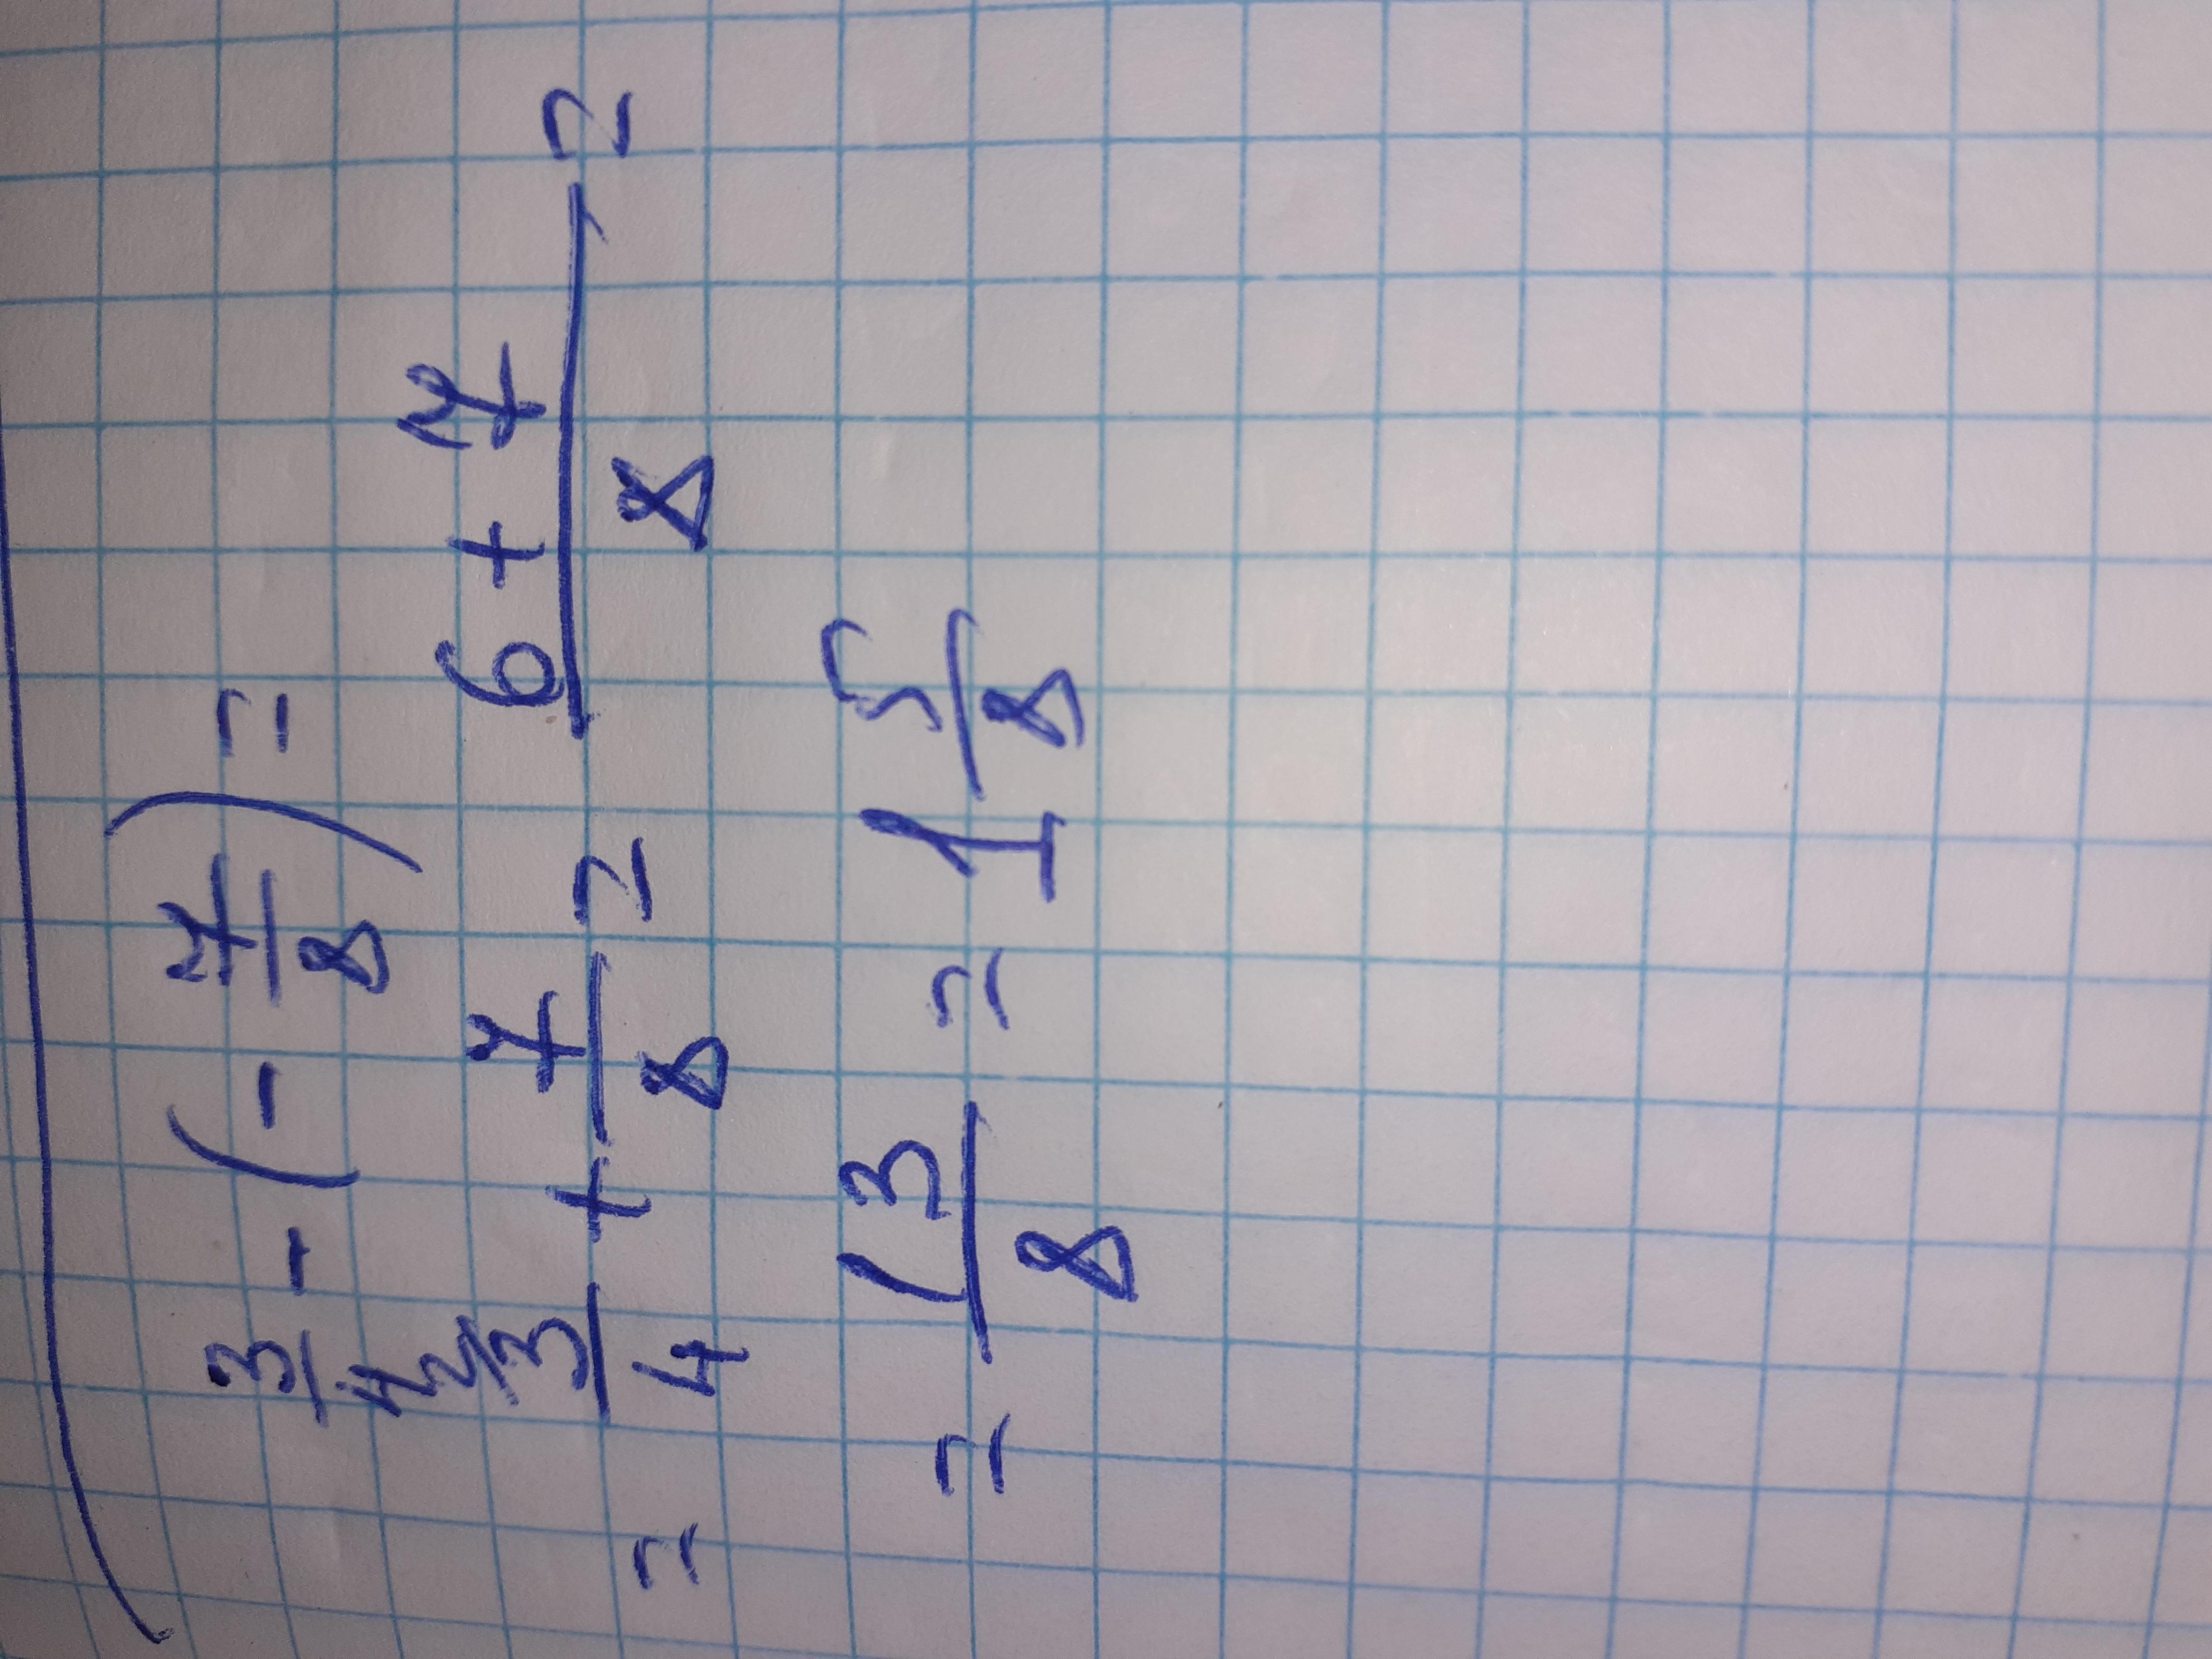 3/4 - (- 7/8) =
= 2/3/4 + 7/8 = (6 + 7)/8 =
= 13/8 = 1 5/8